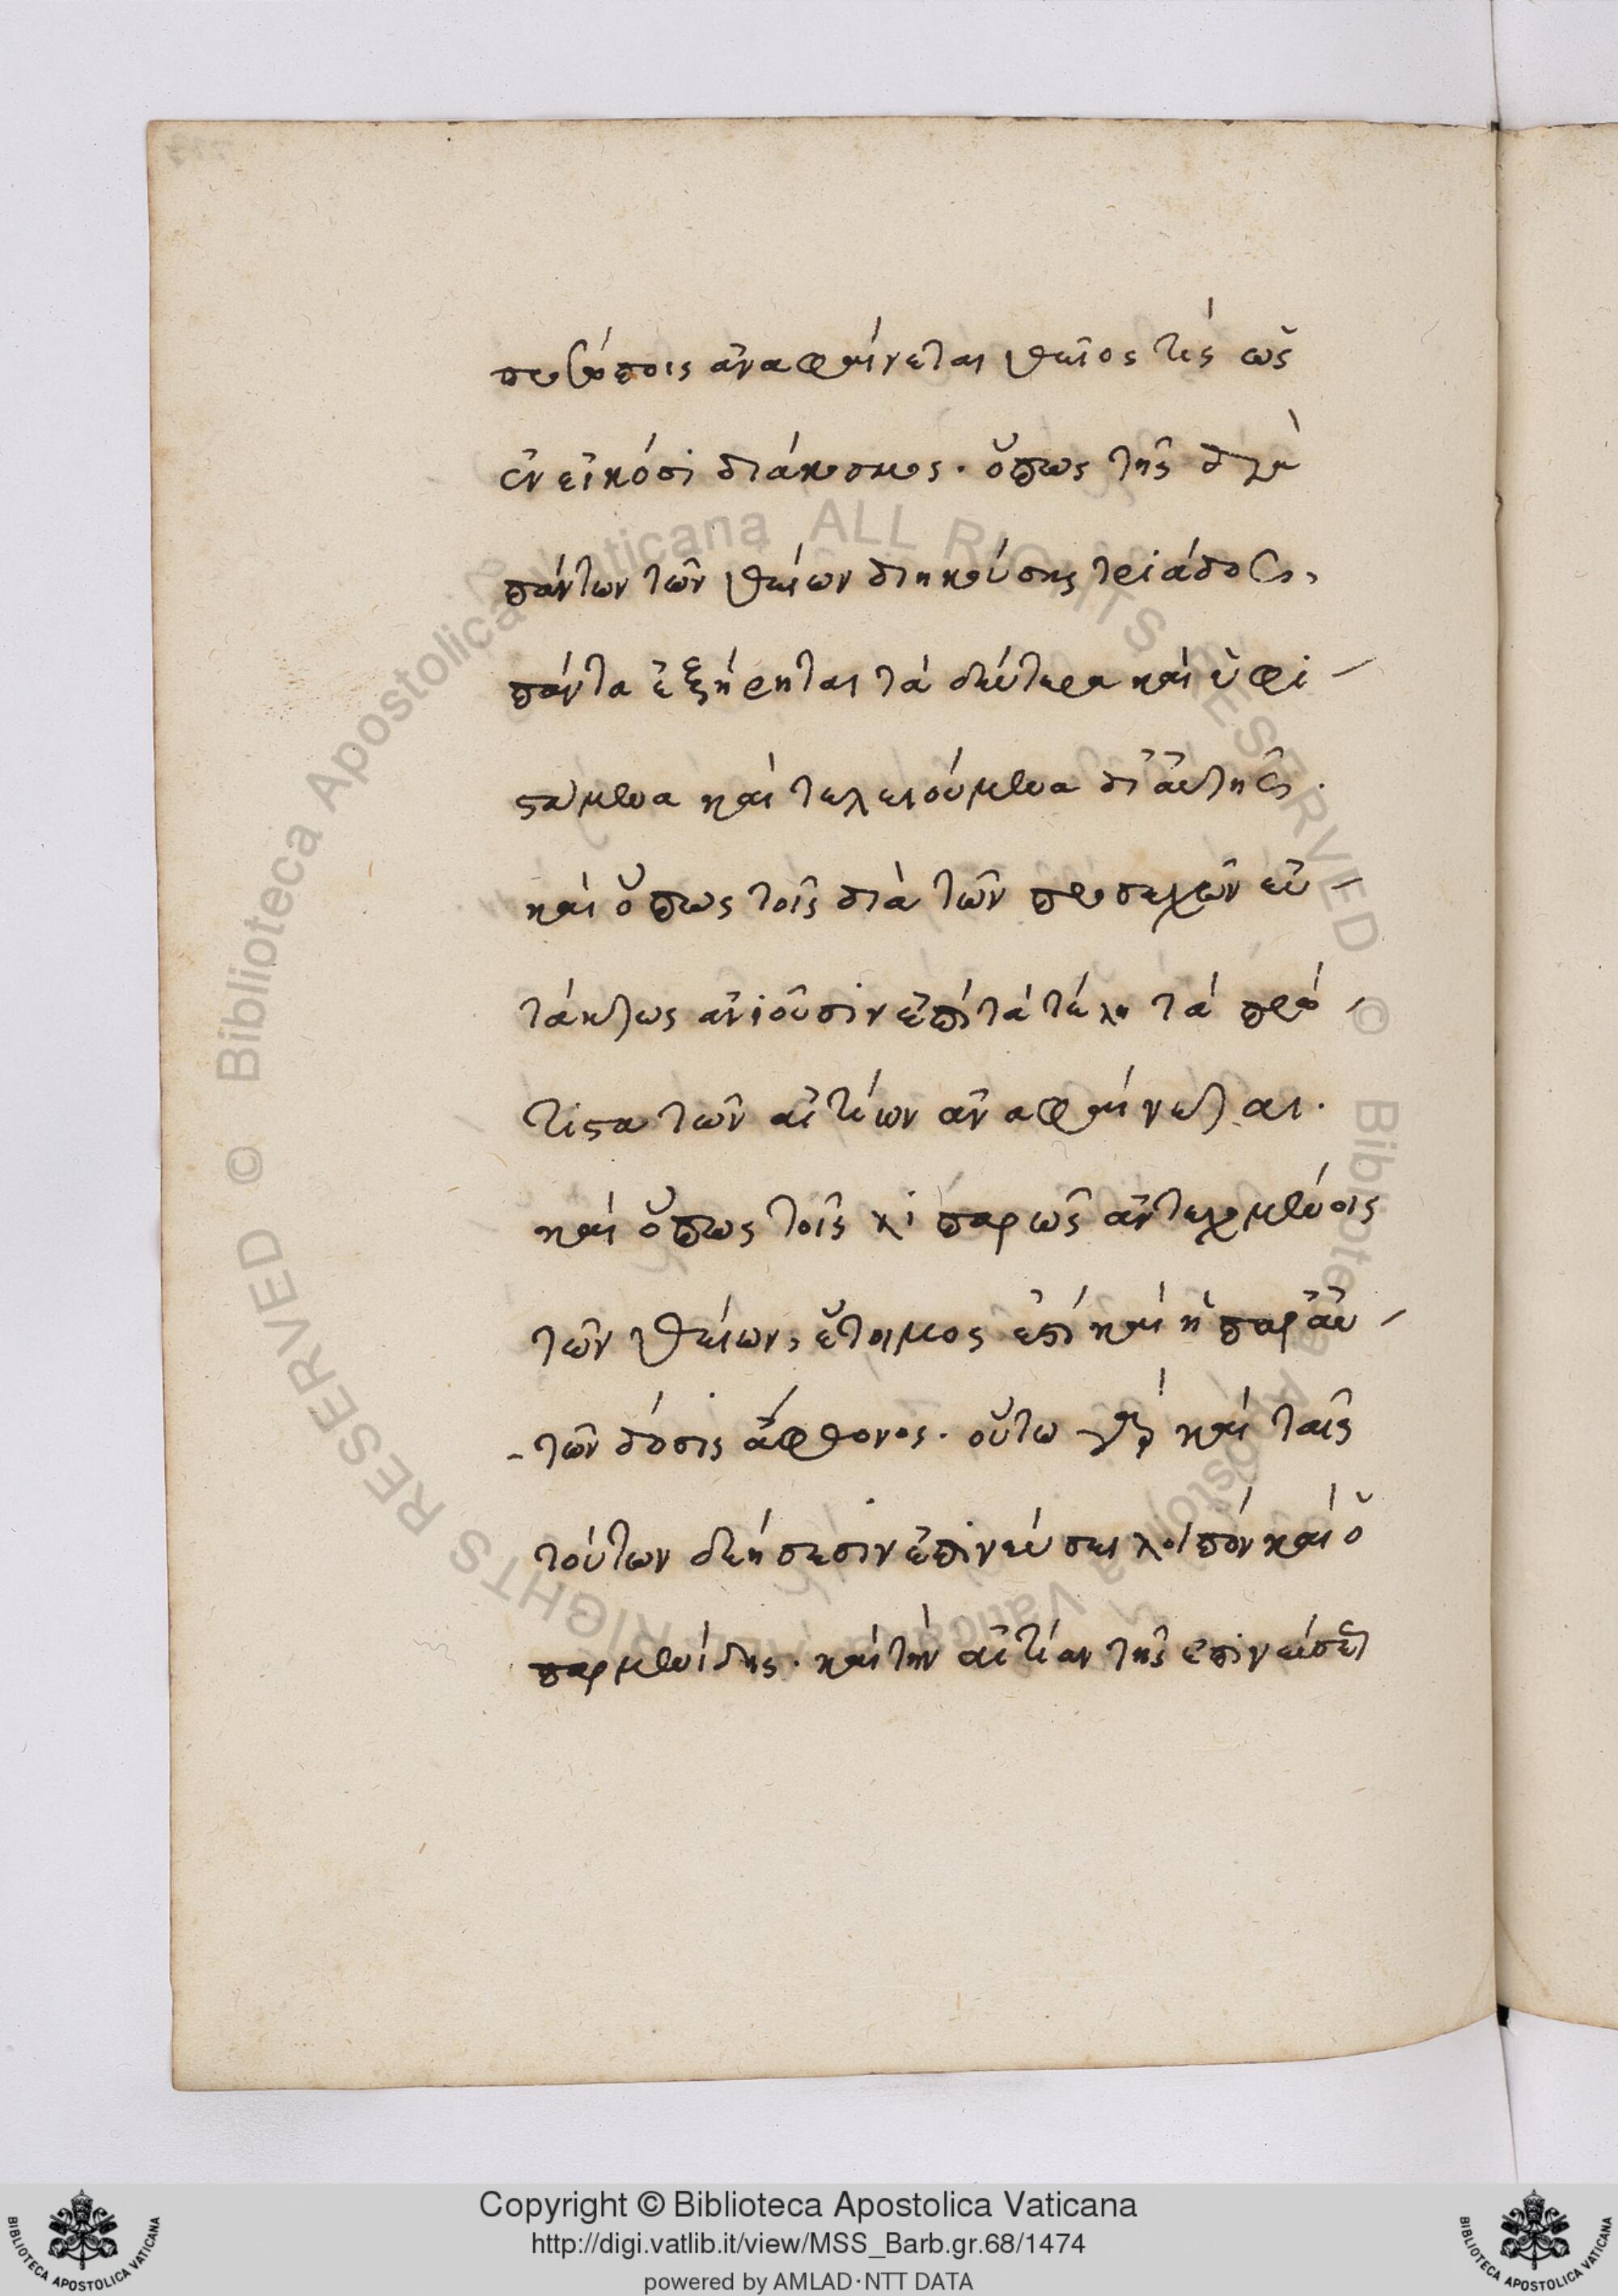 προσώποις ἀναφαίνεται θεῖός τις ὡς
ἐν εἰκόσι διάκοσμος. ὅπως τῆς διὰ
πάντων τῶν θείων διηκούσης τριάδος,
πάντα ἐξήρηται τὰ δεύτερα καὶ ὑφι-
στάμενα καὶ τελειούμενα δι' αὐτῆς.
καὶ ὅπως τοῖς διὰ τῶν προσεχῶν εὐ-
τάκτως ἀνιοῦσιν ἐπὶ τὰ τέλη τὰ πρώ-
τιστα τῶν αἰτίων ἀναφαίνεται.
καὶ ὅπως τοῖς λιπαρῶς ἀντεχομένοις
τῶν θείων, ἕτοιμος ἐπὶ καὶ ἡ παρ' αὐ-
-τῶν δόσις ἄφθονος. οὕτω γὰρ καὶ ταῖς
τούτων δεήσεσιν ἐπινεύσει λοιπὸν καὶ ὁ
παρμενίδης. καὶ τὴν αἰτίαν τῆς ἐπινεύσεως
Copyright © Biblioteca Apostolica Vaticana
http://digi.vatlib.it/view/MSS_Barb.gr.68/1474
powered by AMLAD·NTT DATA
BIBLIOTECA APOSTOLICA VATICANA
BIBLIOTECA APOSTOLICA VATICANA
© Biblioteca Apostolica Vaticana ALL RIGHTS RESERVED © Biblioteca Apostolica Vaticana ALL RIGHTS RESERVED